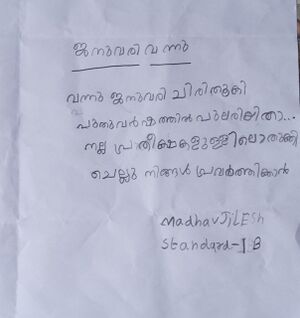 ജനുവരി വന്നു
വന്നു ജനുവരി ചിരിതൂകി
പുതുവർഷത്തിൻ പുലരിയിതാ...
നല്ല പ്രതീക്ഷകളുള്ളിലൊതുക്കി
ചെല്ലു നിങ്ങൾ പ്രവർത്തിക്കാൻ
Madhav JiLESh
Standard-1 B